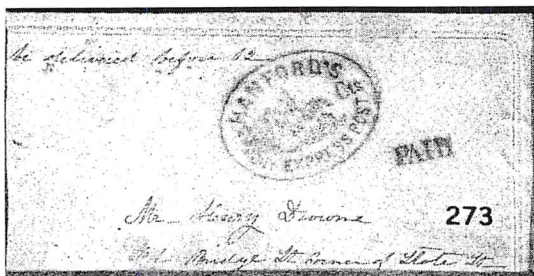 be delivered before 12
HANFORD'S
Cts
PONY EXPRESS POST
PAID
Mr Henry Downe
273
Bridge St. corner of State St